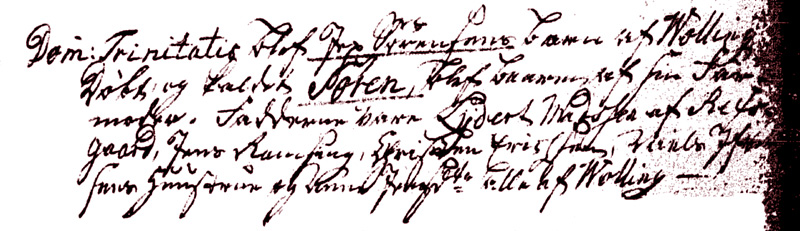 Dom: Trinitatis blef Jep Sörensens barn af Wolling
Döbt og kaldet Sören, blef baaren af sin Far-
moder. Fadderne vare Lydert af
gaard, Jens Ramsing, Christen Erichsen, Niels
sens Huustrue og Anne alle af Wolling —